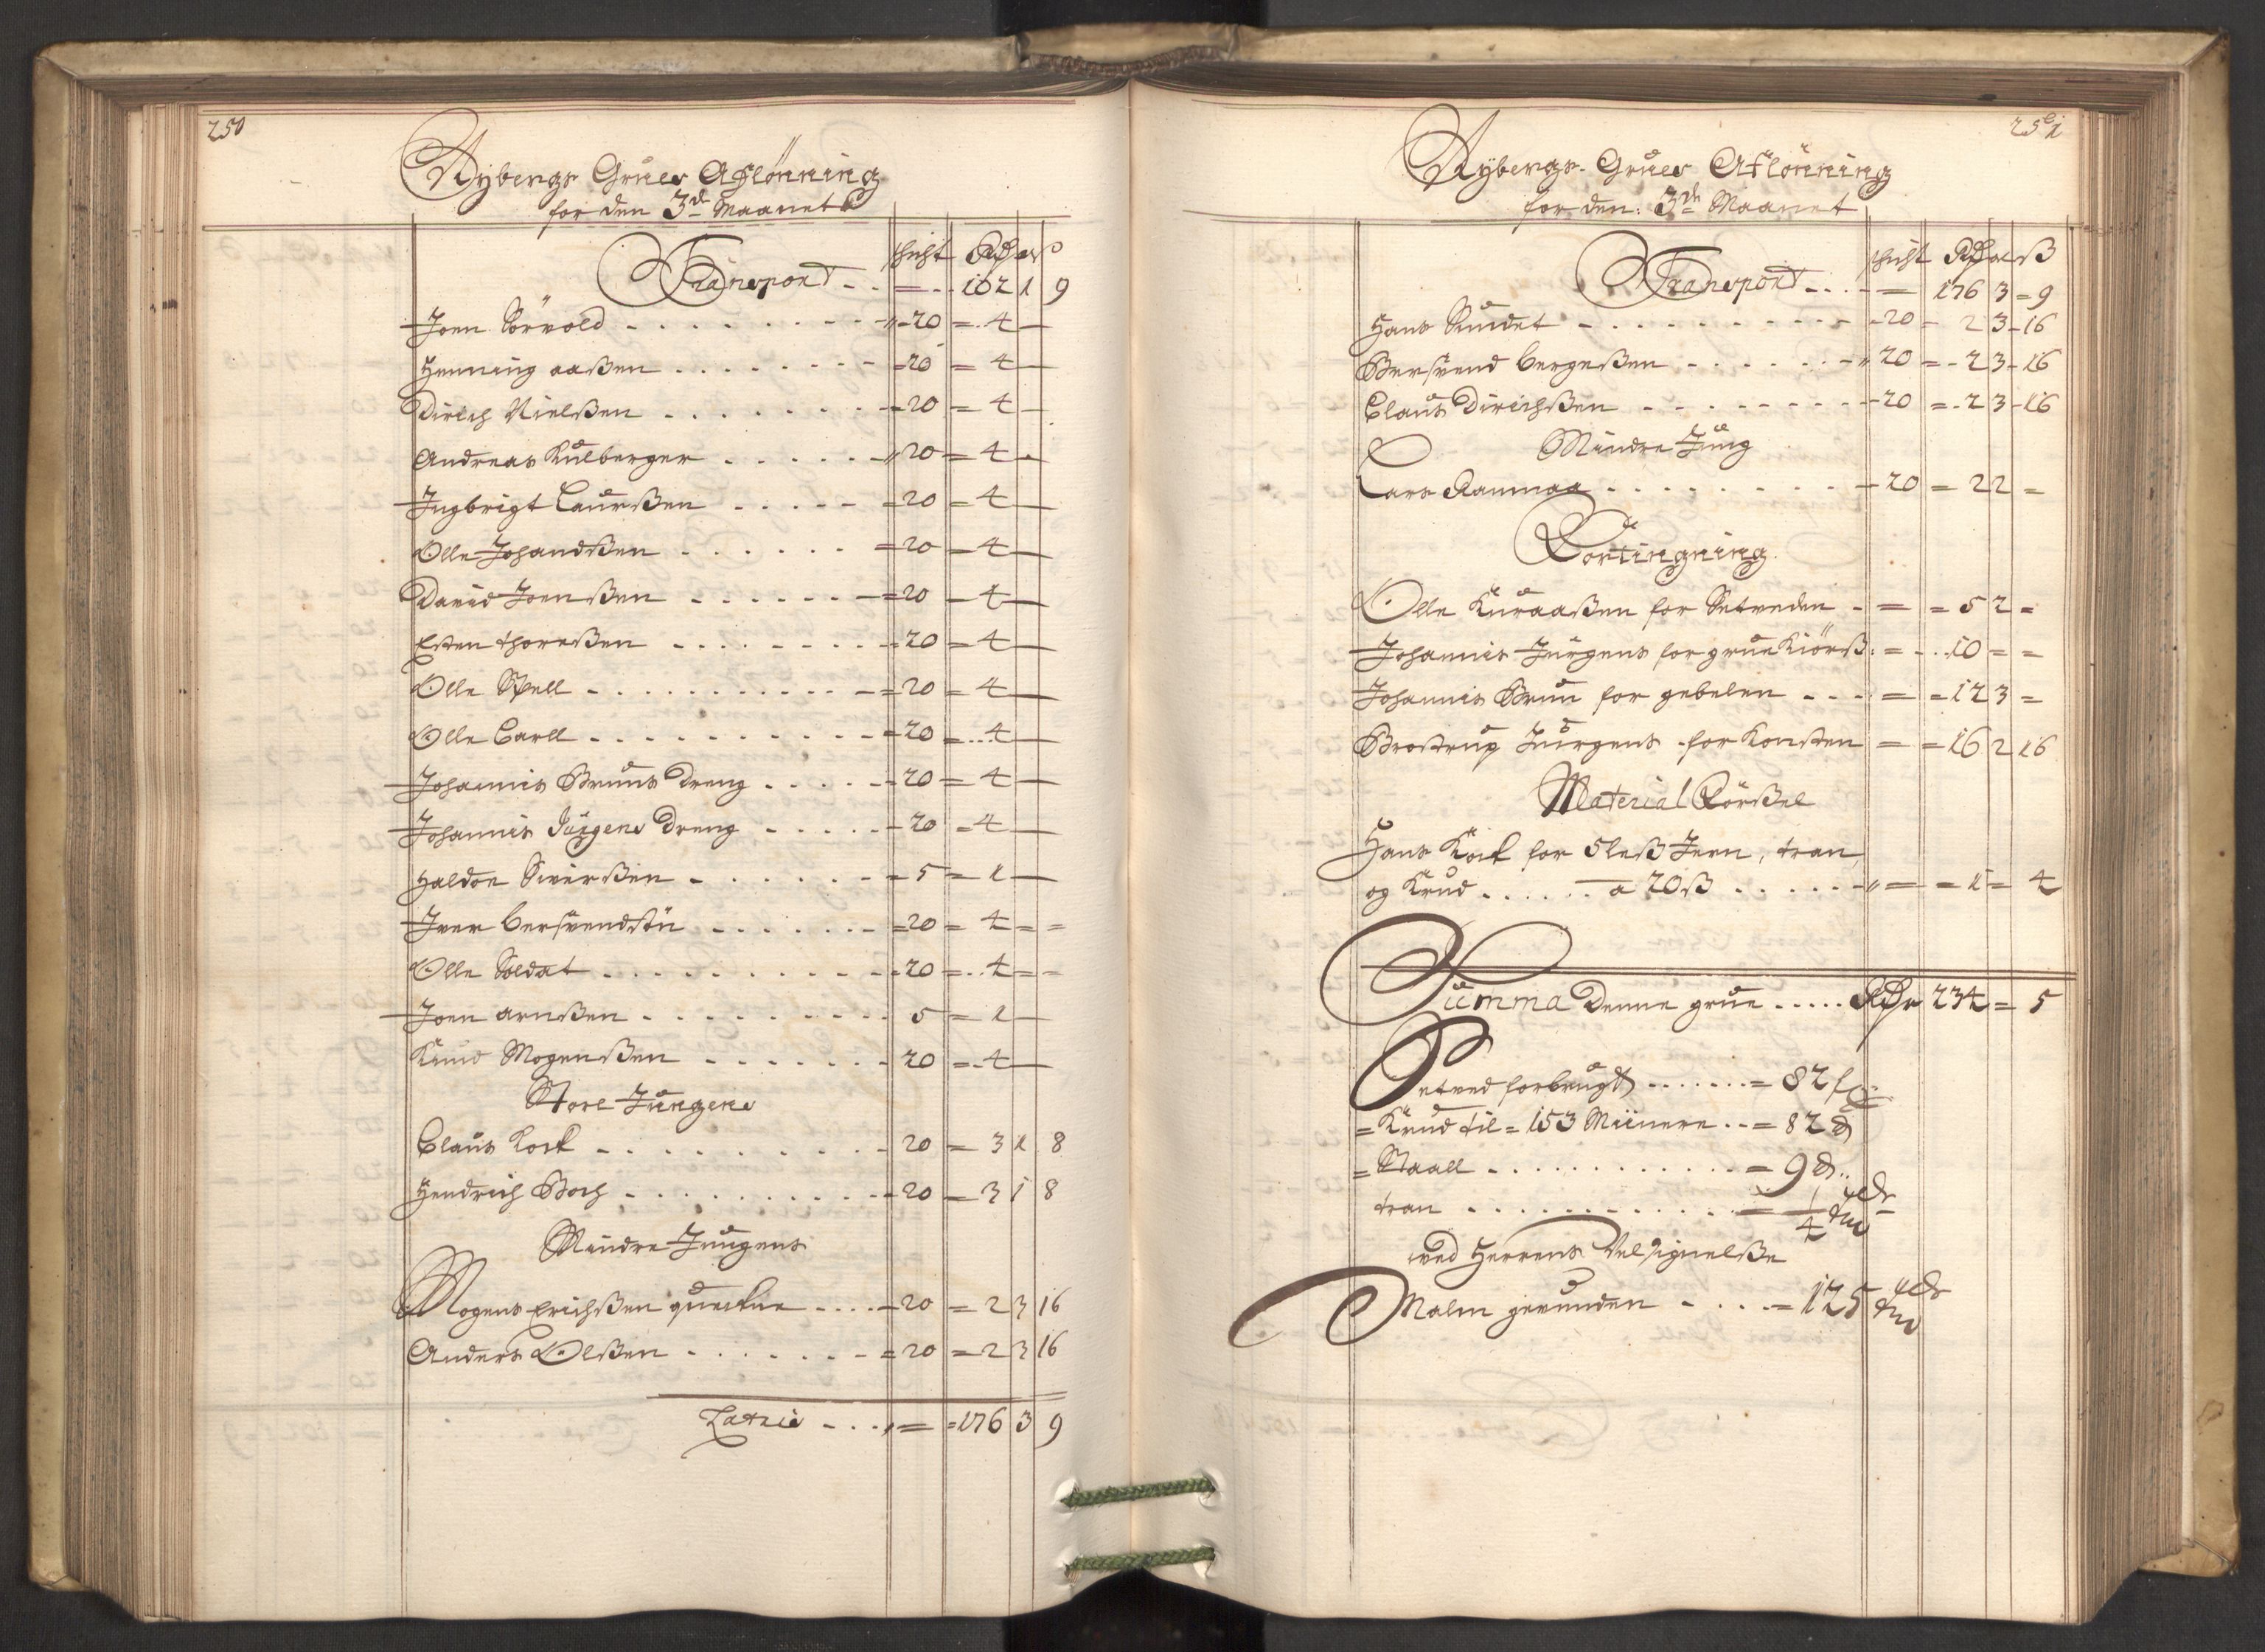 250
Nybergs Grues Aflönning
for den 3de Maanet
schicht Rdr ort ß
Transport - - = - - 102 1 9
Joen Sörvold - - - - - - - - - 20 = 4 —
Henning aaßen - - - - - - - = 20 = 4 —
Dirich Nielßen - - - - - - - = 20 = 4 —
Andreas Kulberger - - - - - - 20 = 4 -
Ingbrigt Laurßen - - - - - = 20 = 4 —
Olle Johandßen - - - - - - = 20 = 4 —
David Joenßen - - - - - - = 20 = 4 —
Esten thoreßen - - - - - - - - 20 = 4 —
Olle Spell - - - - - - - - - - = 20 = 4 —
Olle Carll - - - - - - - - - - 20 = 4 —
Johannis Bruns Dreng - - - - - 20 = 4 —
Johannis Jürgens Dreng - - - - - 20 = 4 —
Haldoe Siverßen - - - - - - = 5 = 1 —
Iver bersvendßn - - - - - - = 20 = 4 = =
Olle Soldat - - - - - - - - - - 20 = 4 = =
Joen arnßen - - - - - - - - - 5 = 1 —
Knud Mogenßen - - - - - - - 20 = 4 —
Store Jungens
Claus Kock - - - - - - - - - - 20 = 3 1 8
Hendrich Boch - - - - - - - - - 20 = 3 1 8
Mindre Jungens
Mogens Erichßen quekne - - - - 20 = 2 3 16
Anders Olßen - - - - - - - = 20 = 2 3 16
Latrie - - - = = 176 3 9
251
Nybergs Grues Aflönning
for den: 3de Maanet
schicht Rdr ort ß
Transport - - - = 176 3 = 9
Hans Sundet - - - - - - - - - - 20 = 2 3 - 16
Bersvend bergeßen - - - - - - 20 = 2 3 - 16
Claus Dirichßen - - - - - - - - 20 = 2 3 - 16
Mindre Jung
Lars Raumaa - - - - - - - - - 20 = 2 2 =
Fortingning.
Olle Kuraaßen for Setveden - = = 5 2 =
Johannis Jürgens for grue Kiörß: = - - 10 = =
Johannis Brun for gebelen - - - = = 12 3 =
Brostrup Jürgens for Konsten = = 16 2 16
Material Förßel
Hans Kock for 5 leß Jern, tran,
og Krud - - - - - a 20 ß - - - - - = = 1 = 4
Summa Denne grue - - - - - Rdr 234 = 5
Setved forbrugt - - - - - - = 82 f:
= Krud til = 153 Miinere - - = 82 ℔
= Staall - - - - - - - - - - - - = 9 ℔
tran - - - - - - - - - - - - = 1/4 tdr
ved Herrens Velsignelße
Malm gevunden - - - - = 125 tdr